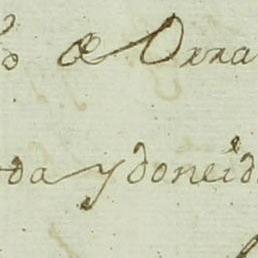 de Orra
da ydoneid